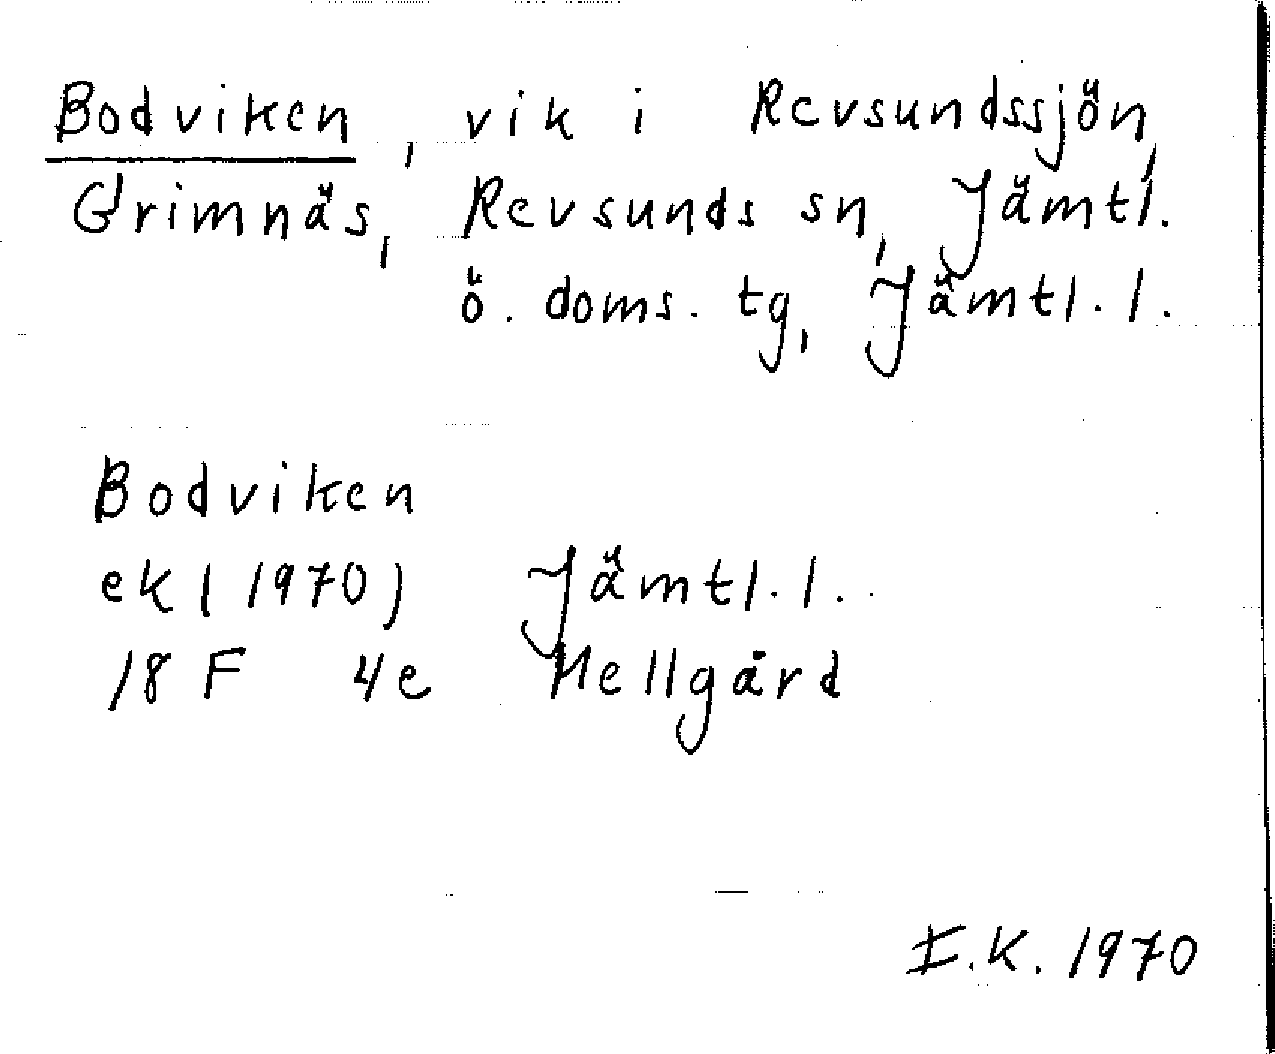 Bodviken, vik i Revsundssjön,
Grimnäs, Revsunds sn, Jämtl.
ö. doms. tg, Jämtl. l.
Bodviken
ek (1970) Jämtl. l.
18 F 4e Hellgård
I.K. 1970